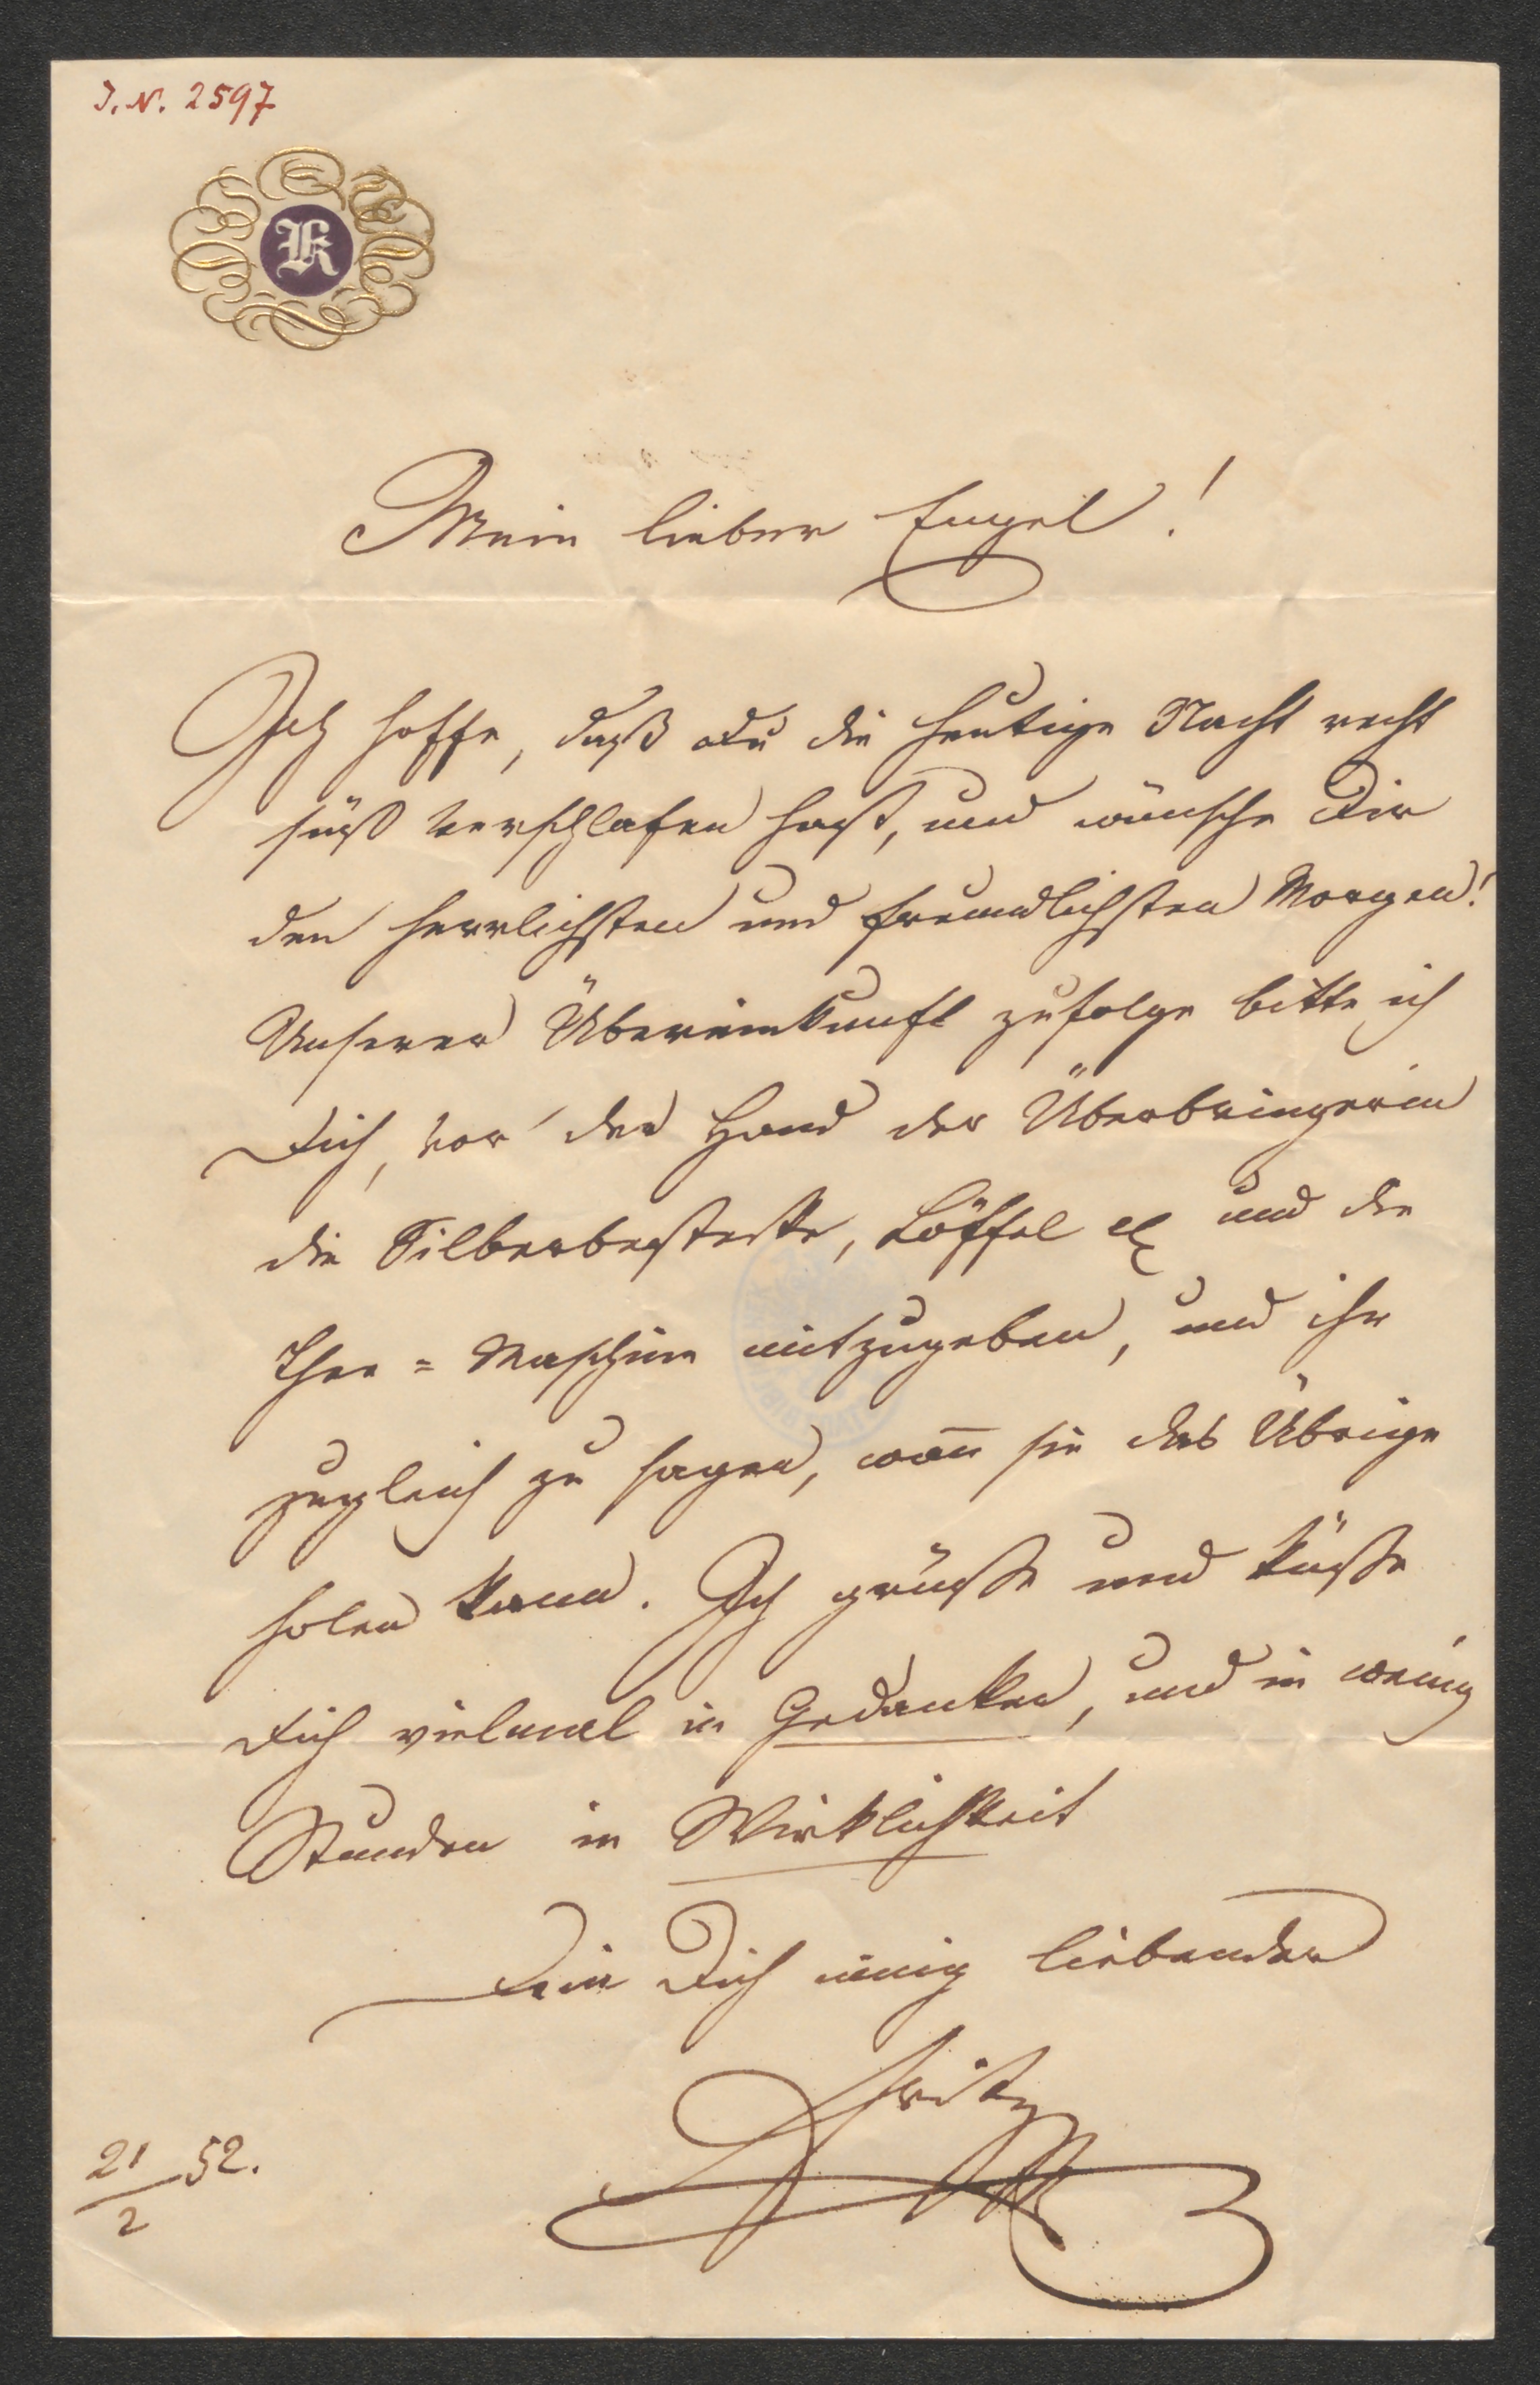 J. N. 2597
K
Mein lieber Engel!
Ich hoffe, daß Du die heutige Nacht recht
süß verschlafen hast, und wünsche Dir
den herrlichsten und freundlichsten Morgen!
Unserer Übereinkunft zufolge bitte ich
Dich, vor der Hand der Überbringerin
die Silberbestecke, Löffel etc und die
Thee = Maschine mitzugeben, und ihr
zugleich zu sagen, wan̄ sie das Übrige
holen kann. Ich grüße und küße
Dich vielmal in Gedanken, und in wenig
Stunden in Wirklichkeit
Dein Dich innig liebender
Fritz
21/2 52.